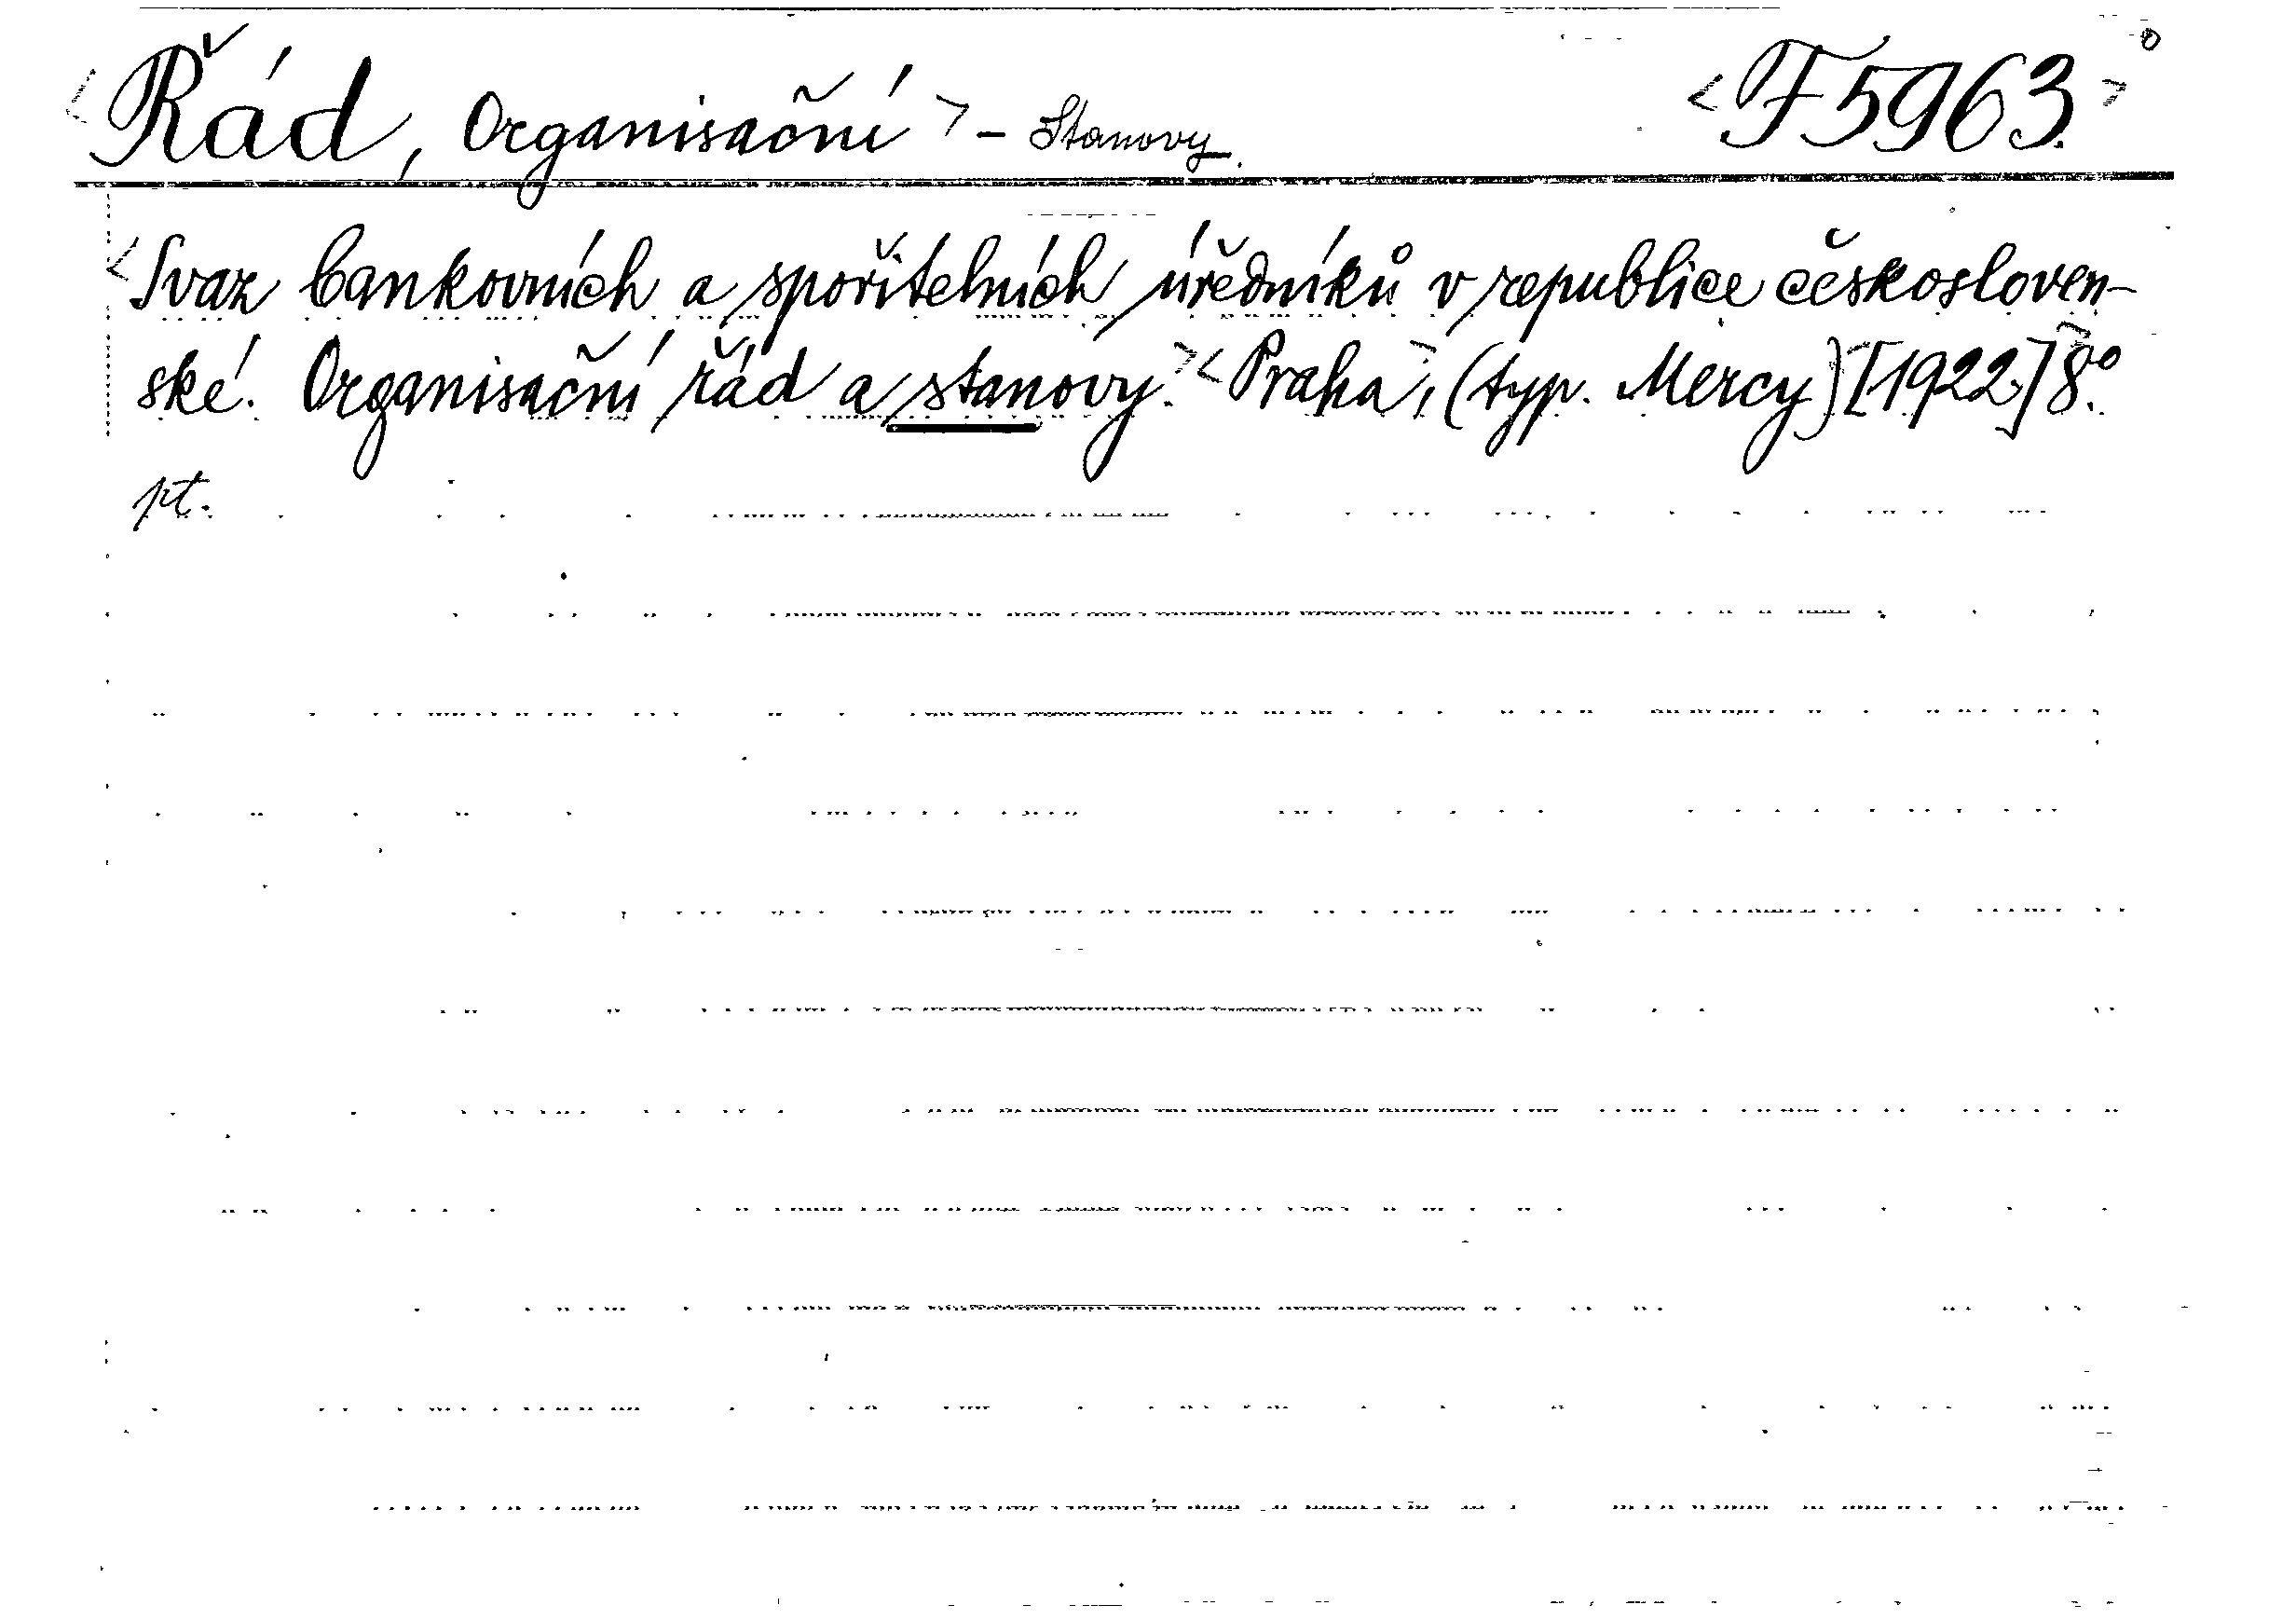 <Řád, Organisační> – Stanovy. <F 5963.>
<Svaz bankovních a spořitelních úředníků v republice českosloven-
ské. Organisační řád a stanovy.> <Praha>, (typ. Mercy) [1922.] 8º.
pt.